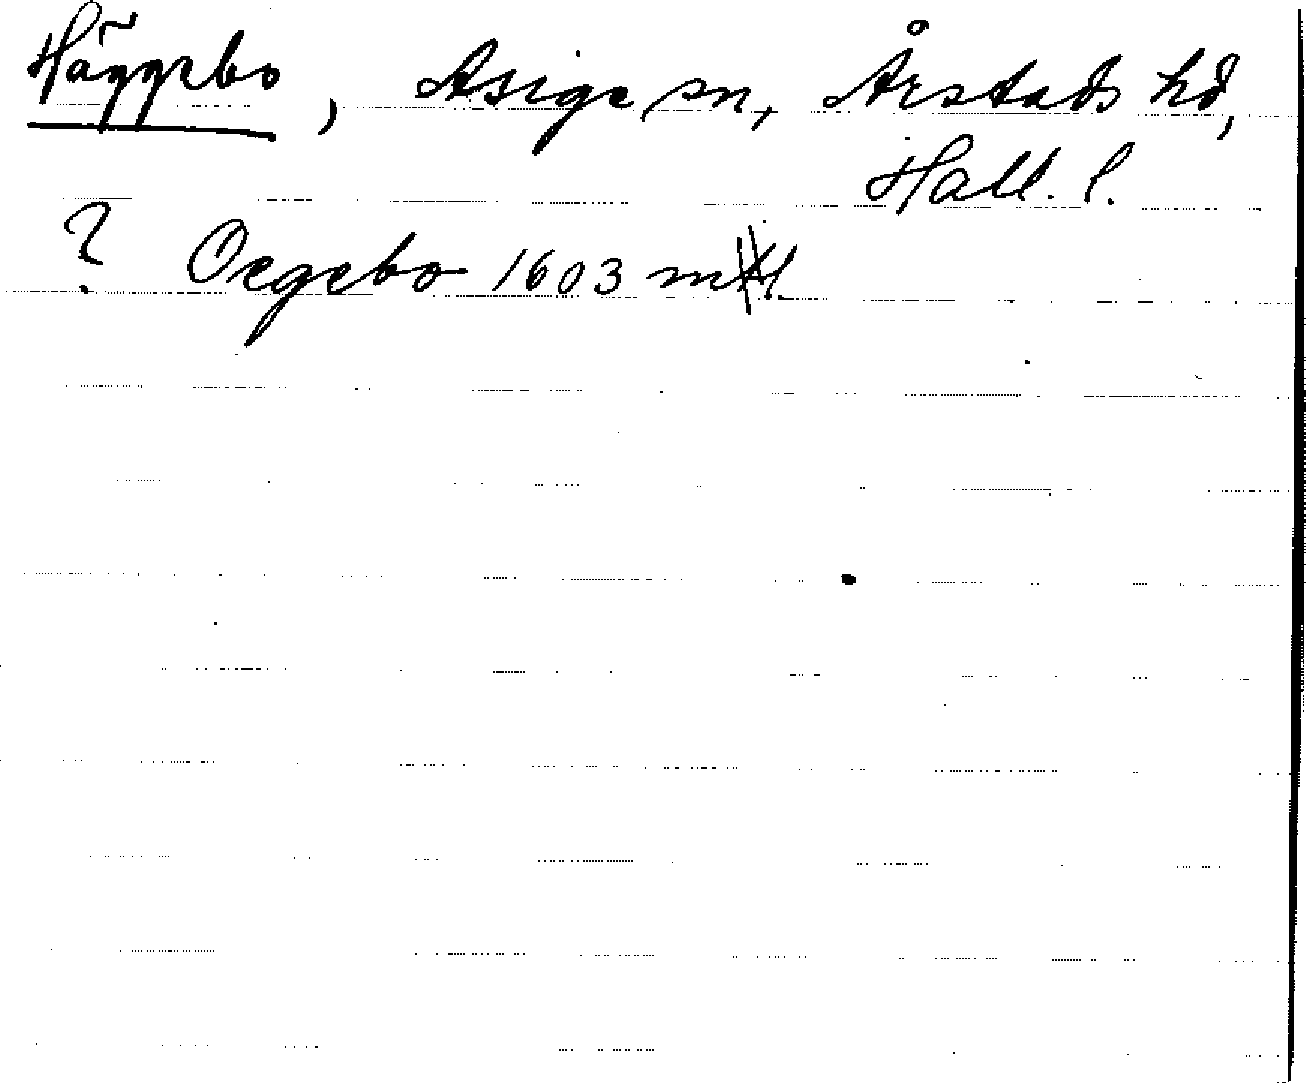 Häggebo, Asige sn, Årstads hd,
Hall. l.
? Oegebo 1603